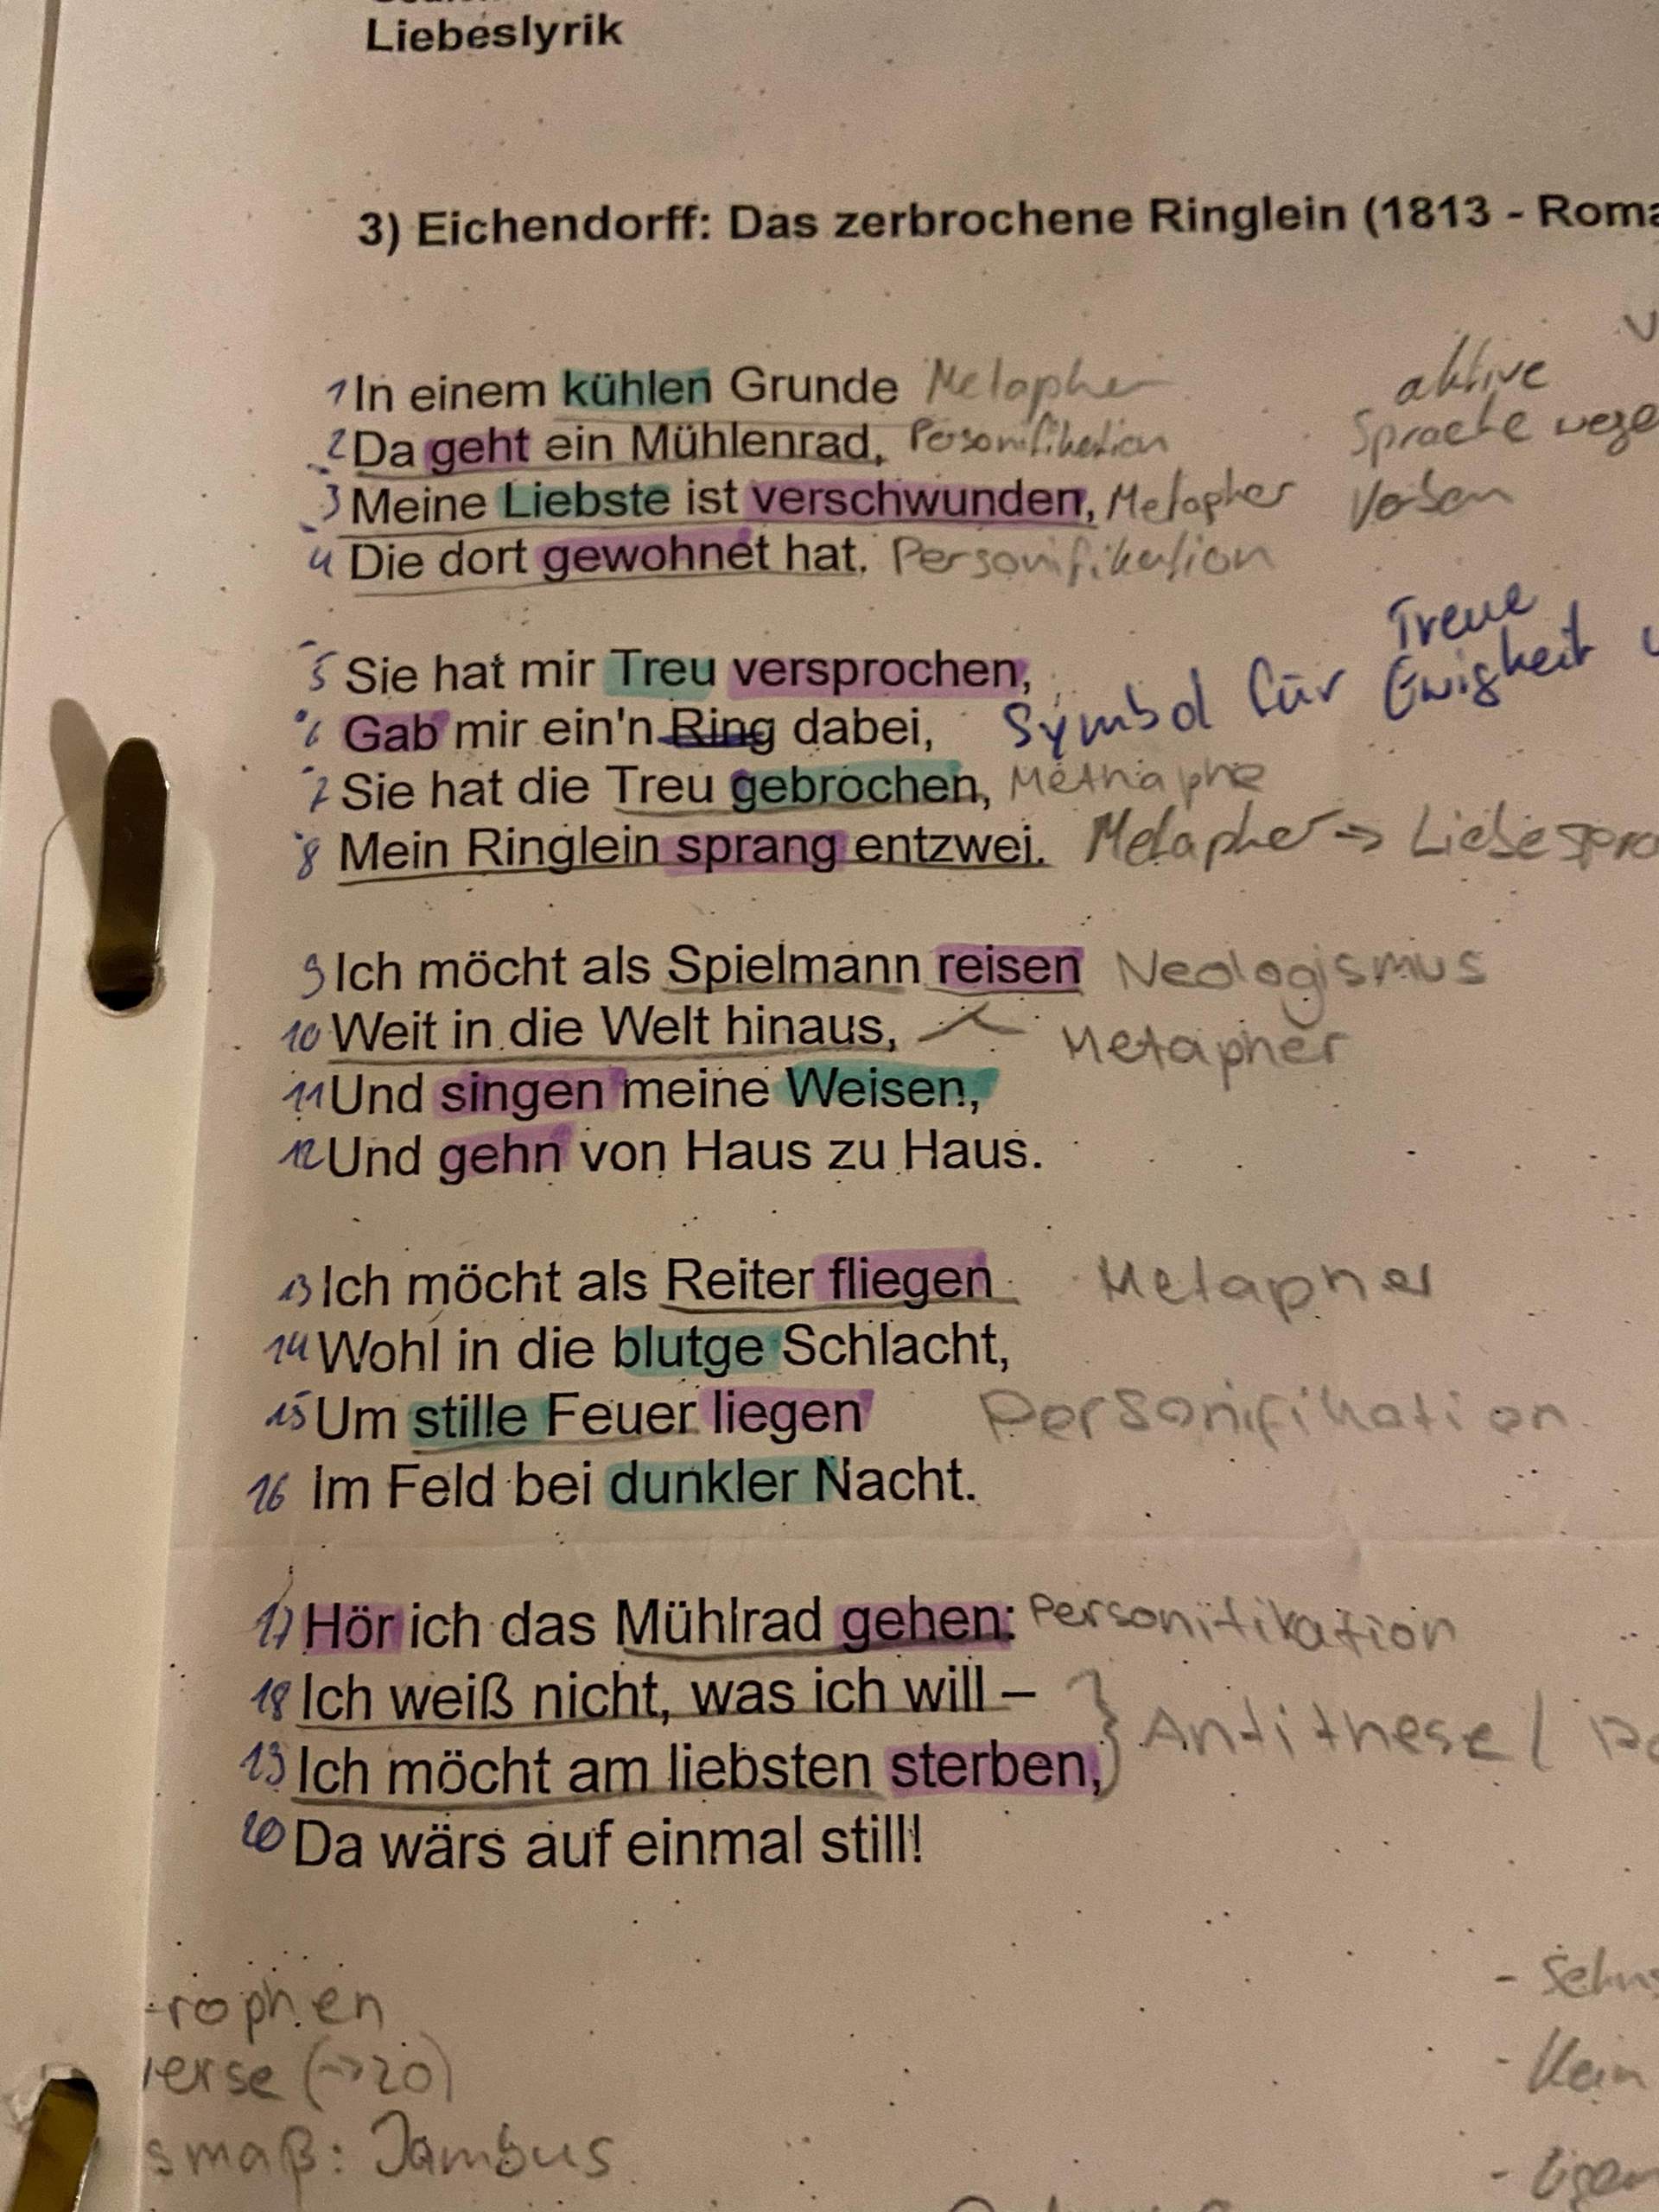 Liebeslyrik
3) Eichendorff: Das zerbrochene Ringlein (1813 - Roma
aktive
Sprache wege
Verben
1 In einem kühlen Grunde Metapher
2 Da geht ein Mühlenrad, Personifikation
3 Meine Liebste ist verschwunden, Metapher
4 Die dort gewohnet hat. Personifikation
Treue
5 Sie hat mir Treu versprochen,
6 Gab mir ein'n Ring dabei, Symbol für Ewigkeit
7 Sie hat die Treu gebrochen, Methaphe
8 Mein Ringlein sprang entzwei. Metapher → Liebe
9 Ich möcht als Spielmann reisen Neologismus
10 Weit in die Welt hinaus, Metapher
11 Und singen meine Weisen,
12 Und gehn von Haus zu Haus.
13 Ich möcht als Reiter fliegen Metapher
14 Wohl in die blutge Schlacht,
15 Um stille Feuer liegen Personifikation
16 Im Feld bei dunkler Nacht.
17 Hör ich das Mühlrad gehen: Personifikation
18 Ich weiß nicht, was ich will –
19 Ich möcht am liebsten sterben, } Antithese /
20 Da wärs auf einmal still!
rophen
erse (→20)
smaß: Jambus
- Sehns
- Kein